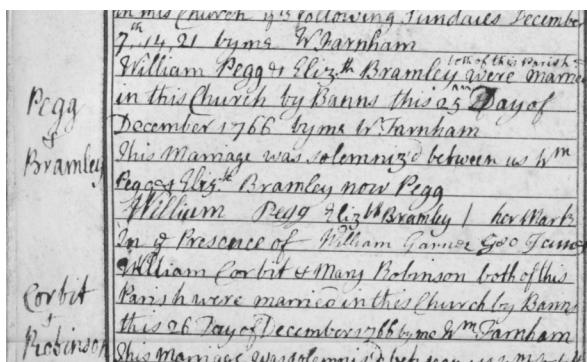 in this Church ye 3 following Sundaies December
7th, 14, 21 by me W Farnham
William Pegg & Eliz.th Bramley both of this Parish were married
in this Church by Banns this 25 Day of
December 1766 by me Wm Farnham
This Marriage was solemniz'd between us Wm
Pegg & Eliz.th Bramley now Pegg
William Pegg Elizth Bramley / her Mark
In ye Presence of William Garner Geo
William Corbit & Mary Robinson both of this
Parish were married in this Church by Banns
this 26 Day of December 1766 by me Wm Farnham
This Marriage was solemniz'd between us Wm
Pegg
&
Bramley
Corbit
&
Robinson